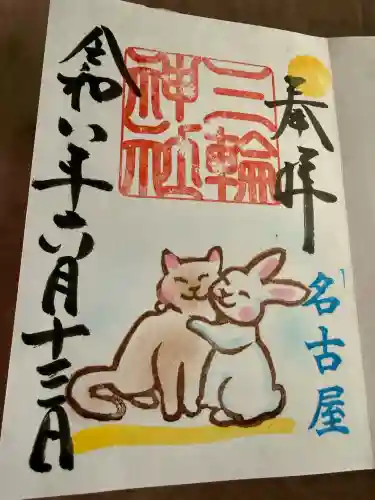 奉拝
三輪
神社
名古屋
令和八年六月十三日